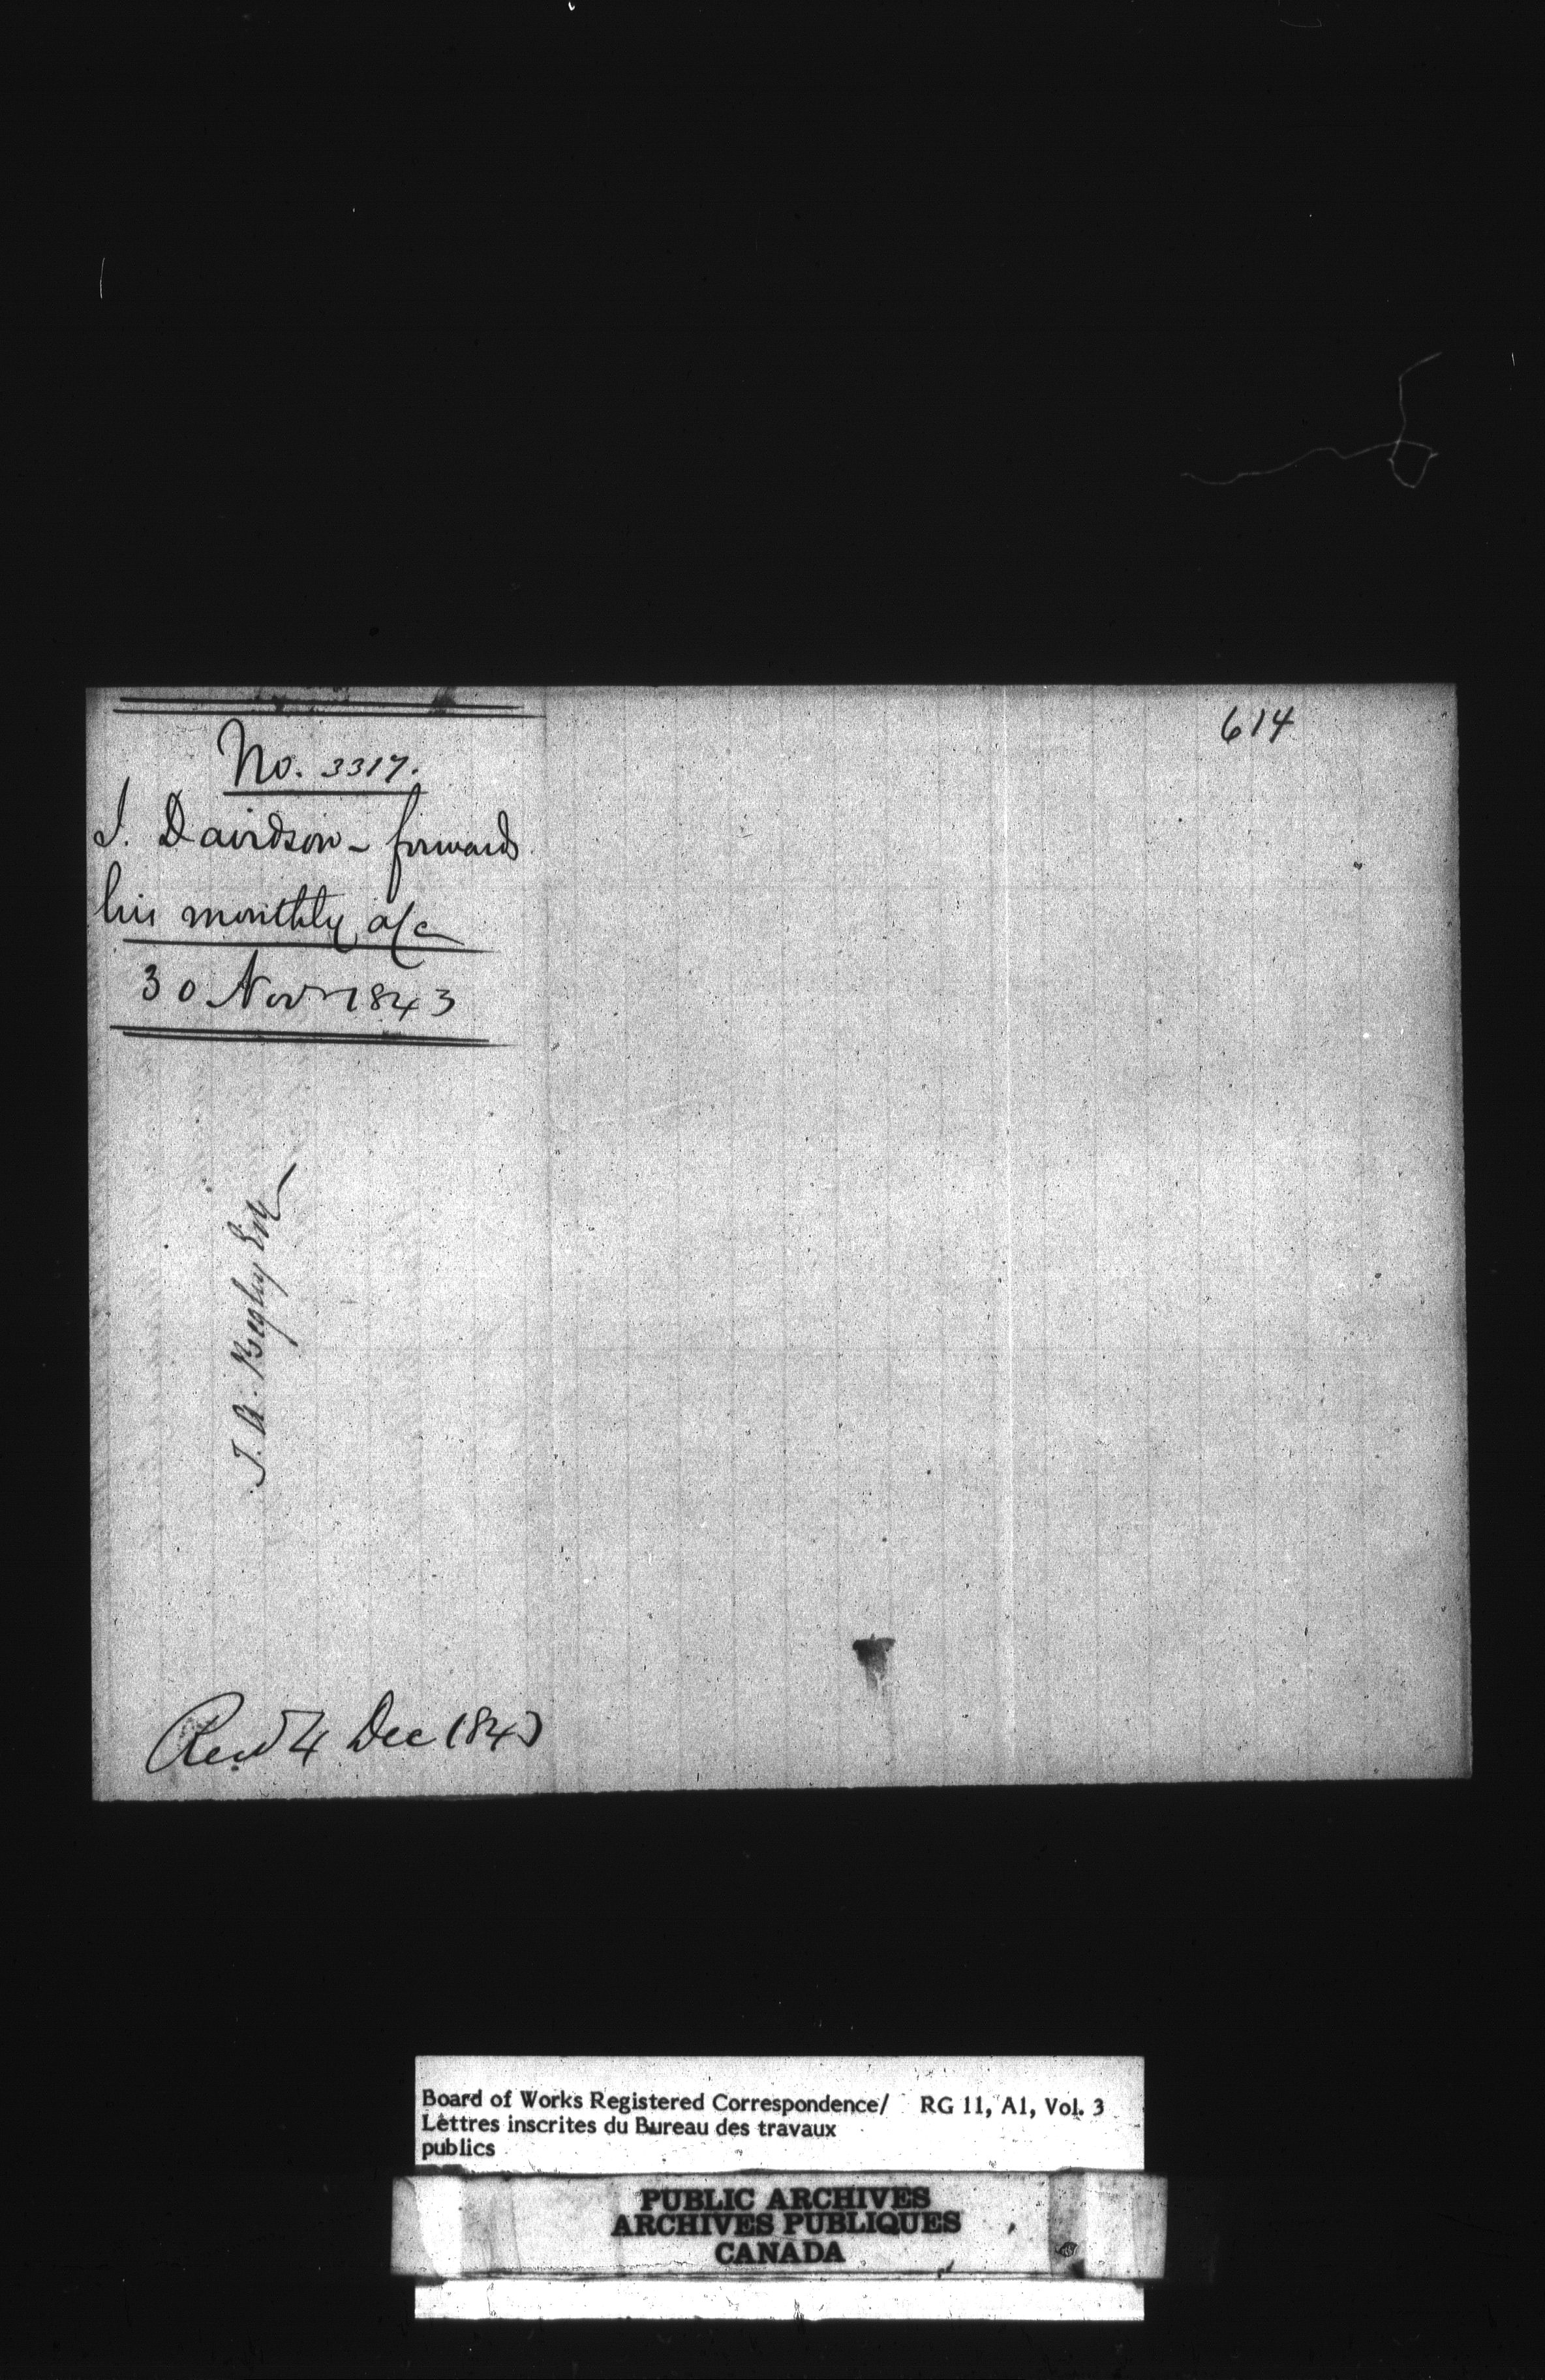 614
No. 3317.
J. Davidson - forwards
his monthly a/c
30 Novr 1843
T. A. Begly Esq
Recd 4 Dec 1843
Board of Works Registered Correspondence/ RG 11, A1, Vol. 3
Lettres inscrites du Bureau des travaux
publics
PUBLIC ARCHIVES
ARCHIVES PUBLIQUES
CANADA